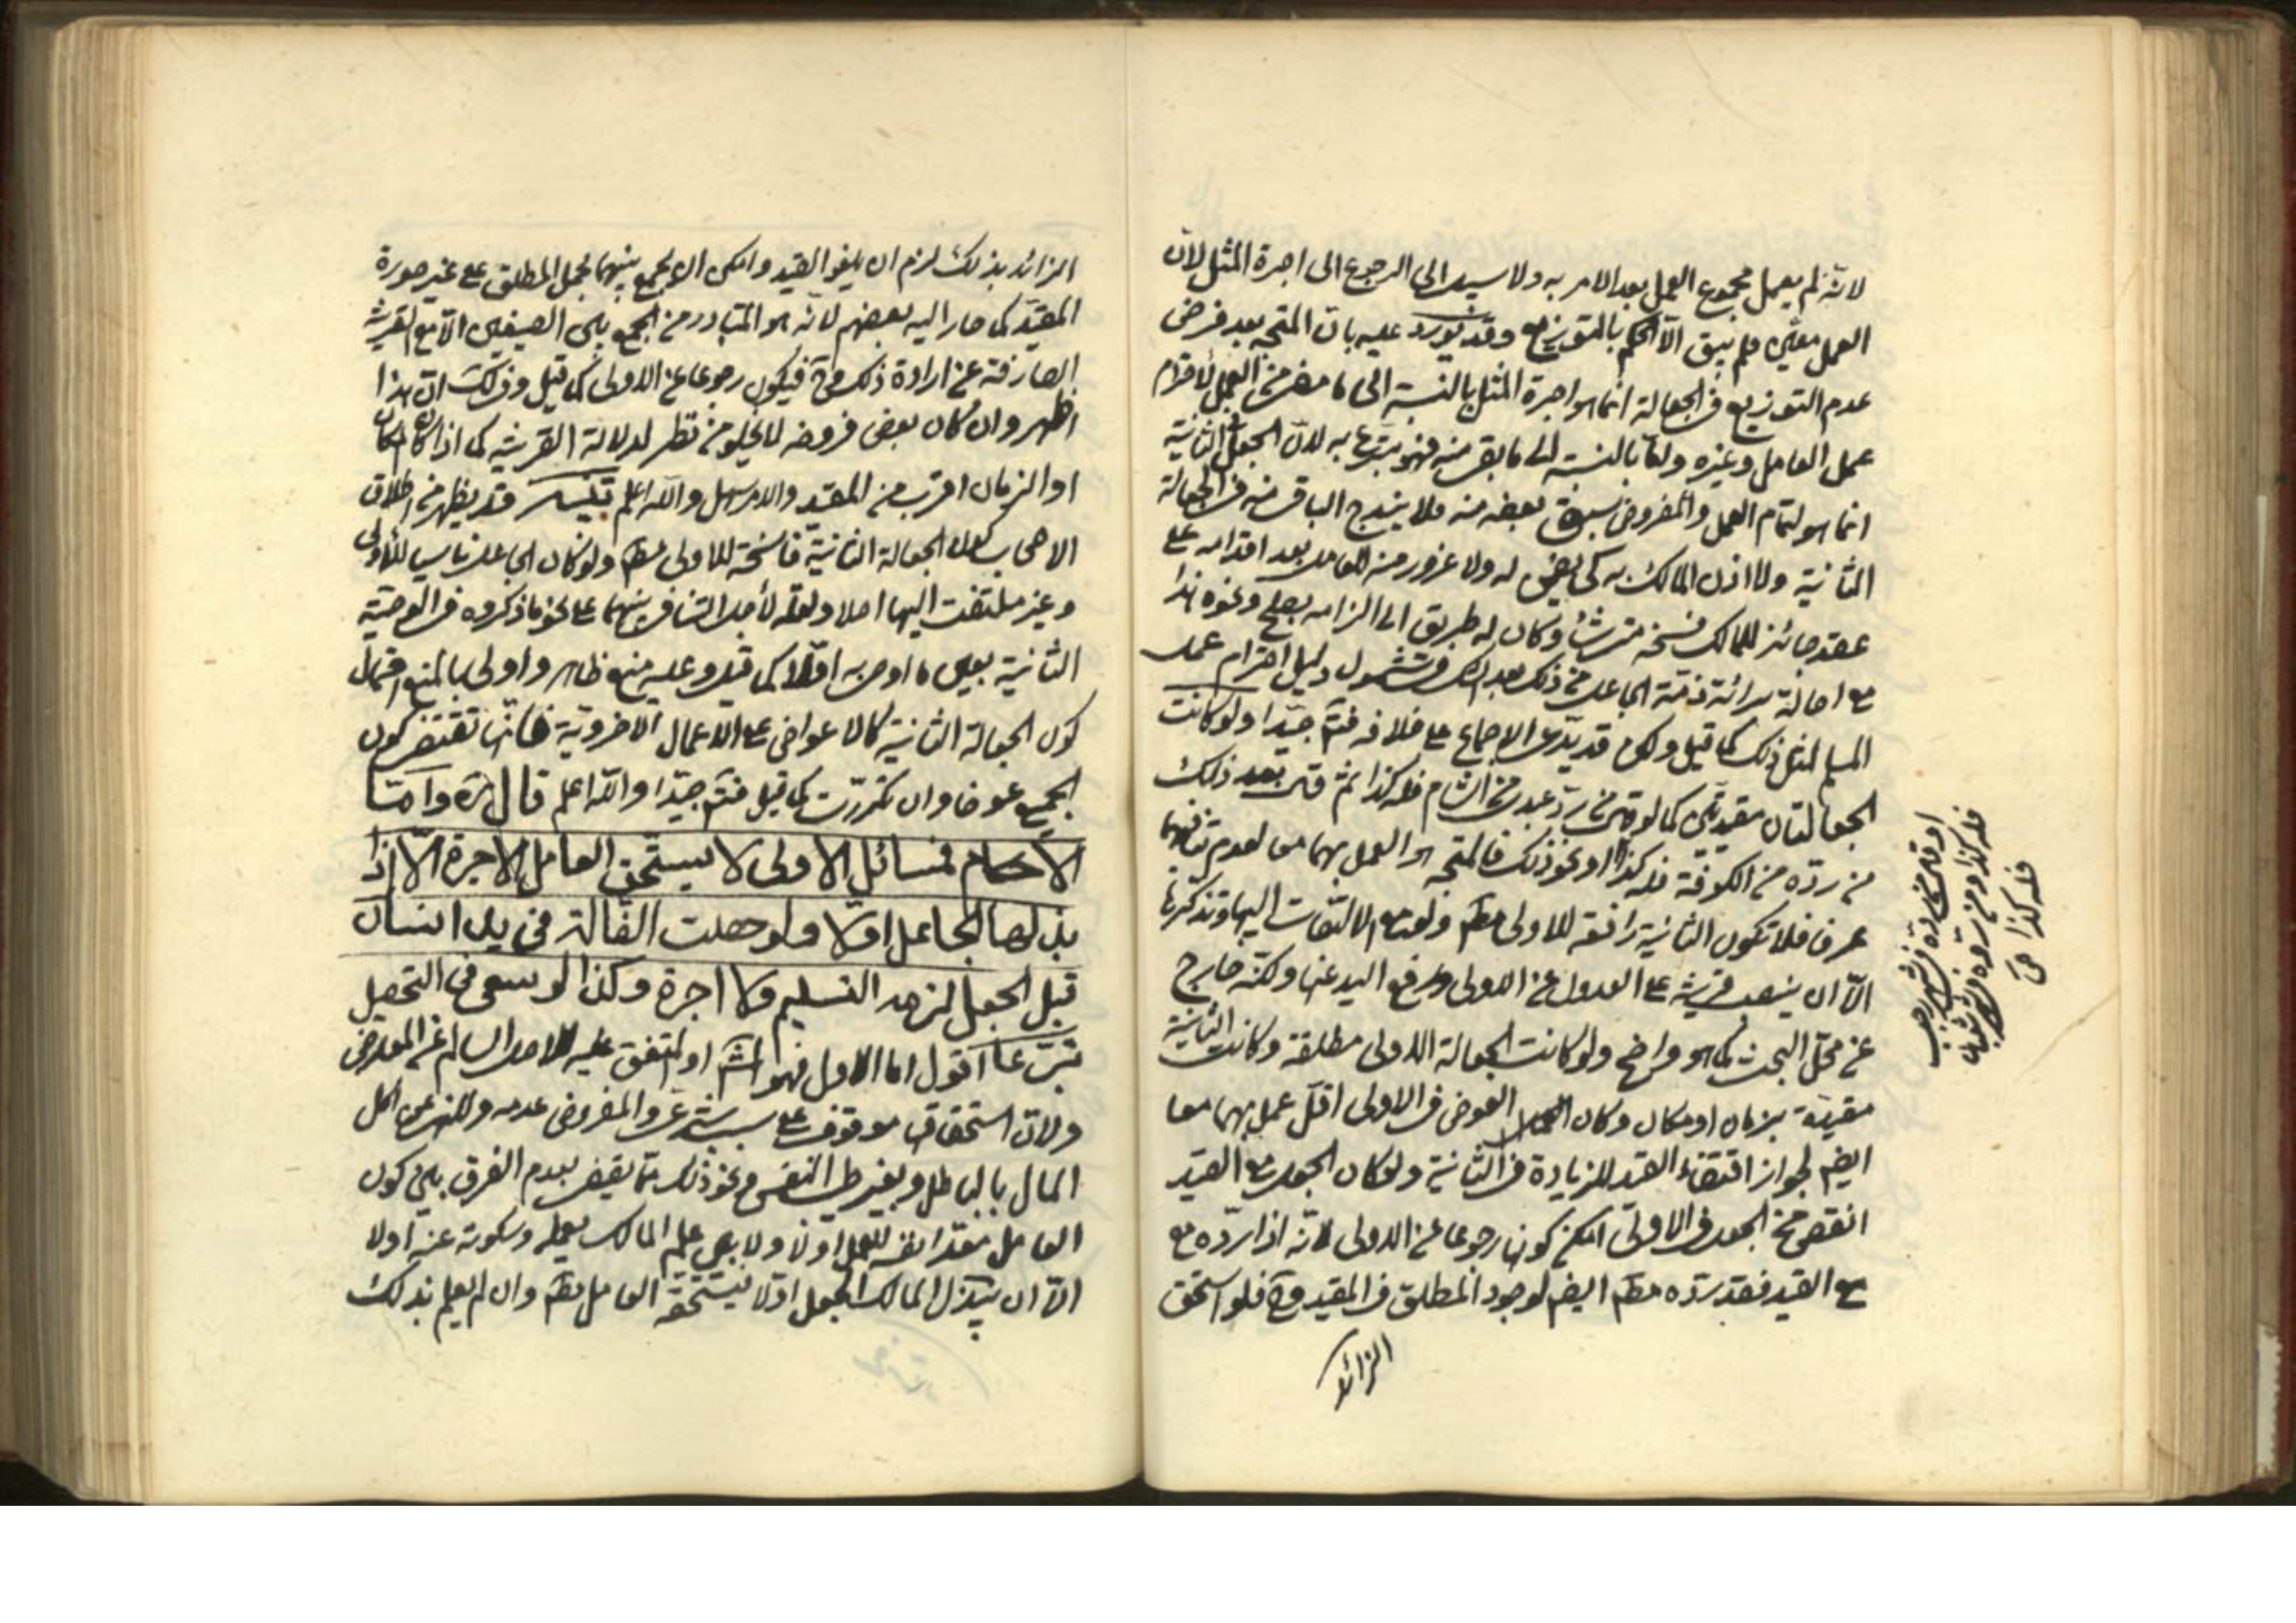 لانّه لم يعمل مجموع العمل بعد الامر به ولا سبيل الى الرجوع الى اجرة المثل لانّ
العمل معيّن فلم يبق الّا الحكم بالتوزيع وقد يورد عليه بانّ المتجه بعد فرض
عدم التوزيع فى الجعالة انما هو اجرة المثل بالنسبة الى ما مضى من العمل لاحترام
عمل العامل وغيره وامّا بالنسبة الى ما بقى منه فهو متبرّع به لانّ الجعل الثانية
انما هو لتمام العمل والمفروض سبق بعضه منه فلا يندرج الباقى منه فى الجعالة
الثانية ولا اذن المالك به كى يضمن له ولا غرور منه للعامل بعد اقدامه على
عقد جائز للمالك فسخه متى شاء وكان له طريق الى الزامه بصلح ونحوه هذا
مع اصالة برائة ذمّة الجاعل من ذلك بعد الشك فى شمول دليل احترام عمل
المسلم لمثل ذلك كما قيل ولكن قد يدّعى الاجماع على خلافه فتم جيّدا ولو كانت
الجعالتان مقيدتين كما لو قال من ردّ عبدى من الشام فله كذا ثم قال بعد ذلك
من ردّه من الكوفة فله كذا او نحو ذلك فالمتجه هو العمل بهما معا لعدم تنافيهما
عرفا فلا تكون الثانية رافعة للاولى مطم ولو مع الالتفات اليها وتذكرها
الّا ان ينصب قرينة على العدول عن الاولى ورفع اليد عنها ولكنّه خارج
عن محلّ البحث كما هو واضح ولو كانت الجعالة الاولى مطلقة وكانت الثانية
مقيدة بزمان او مكان وكان العوض فى الاولى اقلّ عمل بهما معا
ايضم لجواز اقتضاء القيد للزيادة فى الثانية ولو كان الجعل مع القيد
انقص من الجعل فى الاولى امكن كونها رجوعا عن الاولى لانّه اذا ردّه مع
مع القيد فقد ردّه مطم ايضم لوجود المطلق فى المقيد وح فلو استحق
الزائد
او قال من ردّه فى شهر رجب
فله كذا ومن ردّه فى شعبان
فله كذا صح
الزائد بذلك لزم ان يلغو القيد وامكن الجمع بينهما بحمل المطلق على غير صورة
المقيّد كما صار اليه بعضهم لانّه هو المتبادر من الجمع بين الصيغتين الّا مع القرينة
الصارفة عن ارادة ذلك وح فيكون رجوعا عن الاولى كما قيل وذلك انّ هذا
اظهر وان كان بعض فروضه لا يخلو من نظر لدلالة القرينة كما اذا كان المكان
او الزمان اقرب من المقيد والامر سهل والله اعلم تنبيه قد يظهر من اطلاق
الاصحاب كون الجعالة الثانية فاسخة للاولى مطم ولو كان الجاعل ناسيا للاولى
وغير ملتفت اليها اصلا ولعلّه لأجل التنافى بينهما على نحو ما ذكروه فى الوصيّة
الثانية بعين ما اوصى به اوّلا كما قيل وعليه منع ظاهر واولى بالمنع احتمال
كون الجعالة الثانية كالاعواض على الاعمال الاخروية فانّها تقتضى كون
الجميع عوضا وان تكررت كما قيل فتم جيّدا والله اعلم قال ره وامّا
الاحكام فمسائل الاولى لا يستحق العامل الاجرة الّا اذا
بذلها الجاعل اوّلا ولو حصلت الضالة فى يد انسان
قبل الجعل لزمه التسليم ولا اجرة وكذا لو سعى فى التحصيل
تبرّعا اقول اما الاول فهو المشهور او المتفق عليه للاصل السالم عن المعارض
ولانّ استحقاق موقوف على سبب شرعى والمفروض عدمه وللنهى عن اكل
المال بالباطل وبغير طيب النفس ونحو ذلك ممّا يقضى بعدم الفرق بين كون
العامل معدّا نفسه للعمل اولا ولا بين علم المالك بعمله وسكوته عنه اولا
الّا ان يبذل المالك الجعل اوّلا فيستحقه العامل مطم وان لم يعلم بذلك